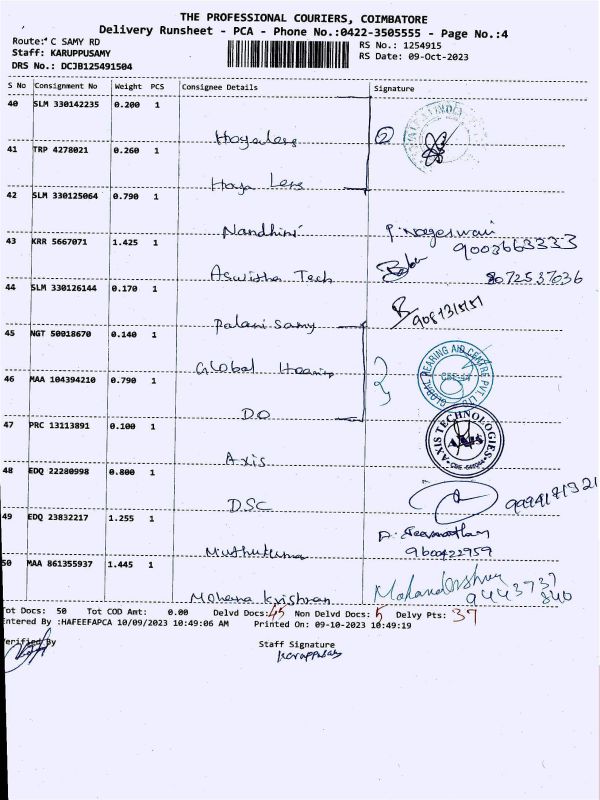 THE PROFESSIONAL COURIERS, COIMBATORE
Delivery Runsheet - PCA - Phone No.:0422-3505555 - Page No.:4
Route: C SAMY RD
RS No.: 1254915
Staff: KARUPPUSAMY
RS Date: 09-Oct-2023
DRS No.: DCJB125491504
S No Consignment No Weight PCS Consignee Details Signature
40 SLM 330142235 0.200 1
Hoyalens 2
41 TRP 4278021 0.260 1
Hoya Lens
42 SLM 330125064 0.790 1
Nandhini P. Nageswari
9003663333
43 KRR 5667071 1.425 1
Aswistha Tech Babu 8072537036
44 SLM 330126144 0.170 1
Palanisamy
45 NGT 50018670 0.140 1
Global Hearing
GLOBAL HEARING AID CENTRE PVT. LTD
46 MAA 104394210 0.790 1
DO
47 PRC 13113891 0.100 1
Axis
AXIS TECHNOLOGIES
AXIS
48 EDQ 22280998 0.800 1
DSC 9994171921
49 EDQ 23832217 1.255 1
Muthukuma
9600422959
50 MAA 861355937 1.445 1
Mohana krishnan
9443737
840
Tot Docs: 50 Tot COD Amt: 0.00 Delvd Docs: 45 Non Delvd Docs: 5 Delvy Pts: 37
Entered By :HAFEEFAPCA 10/09/2023 10:49:06 AM Printed On: 09-10-2023 10:49:19
Verified By Staff Signature
Karuppusamy